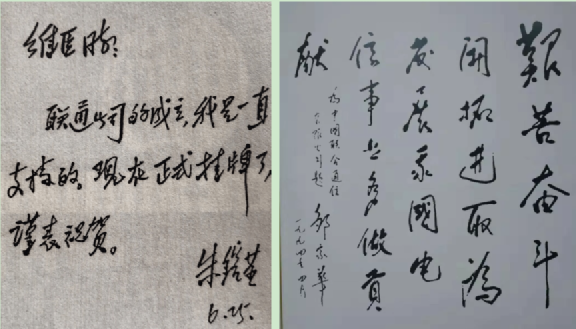 维臣同志:
联通公司的成立,我是一直
支持的。现在正式挂牌了,
谨表祝贺。
朱镕基
6.25.
艱苦奋斗
開拓进取為
发展我國电
信事业多做貢
献
为中國联合通信
有限公司题
邹家華
一九九四年四月